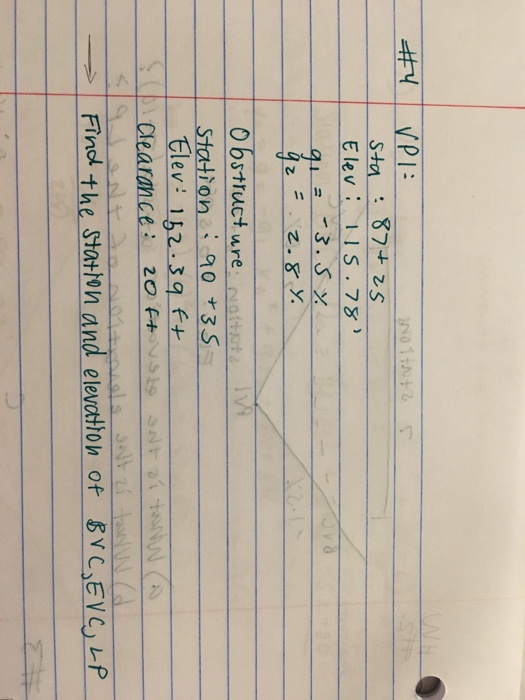 #4 VPI:
Sta : 87+25
Elev: 115.78'
g₁ = -3.5%
g₂ = 2.8%
Obstructure:
Station: 90+35
Elev: 152.39 ft
Clearance: 20 ft
→ Find the station and elevation of BVC, EVC, LP